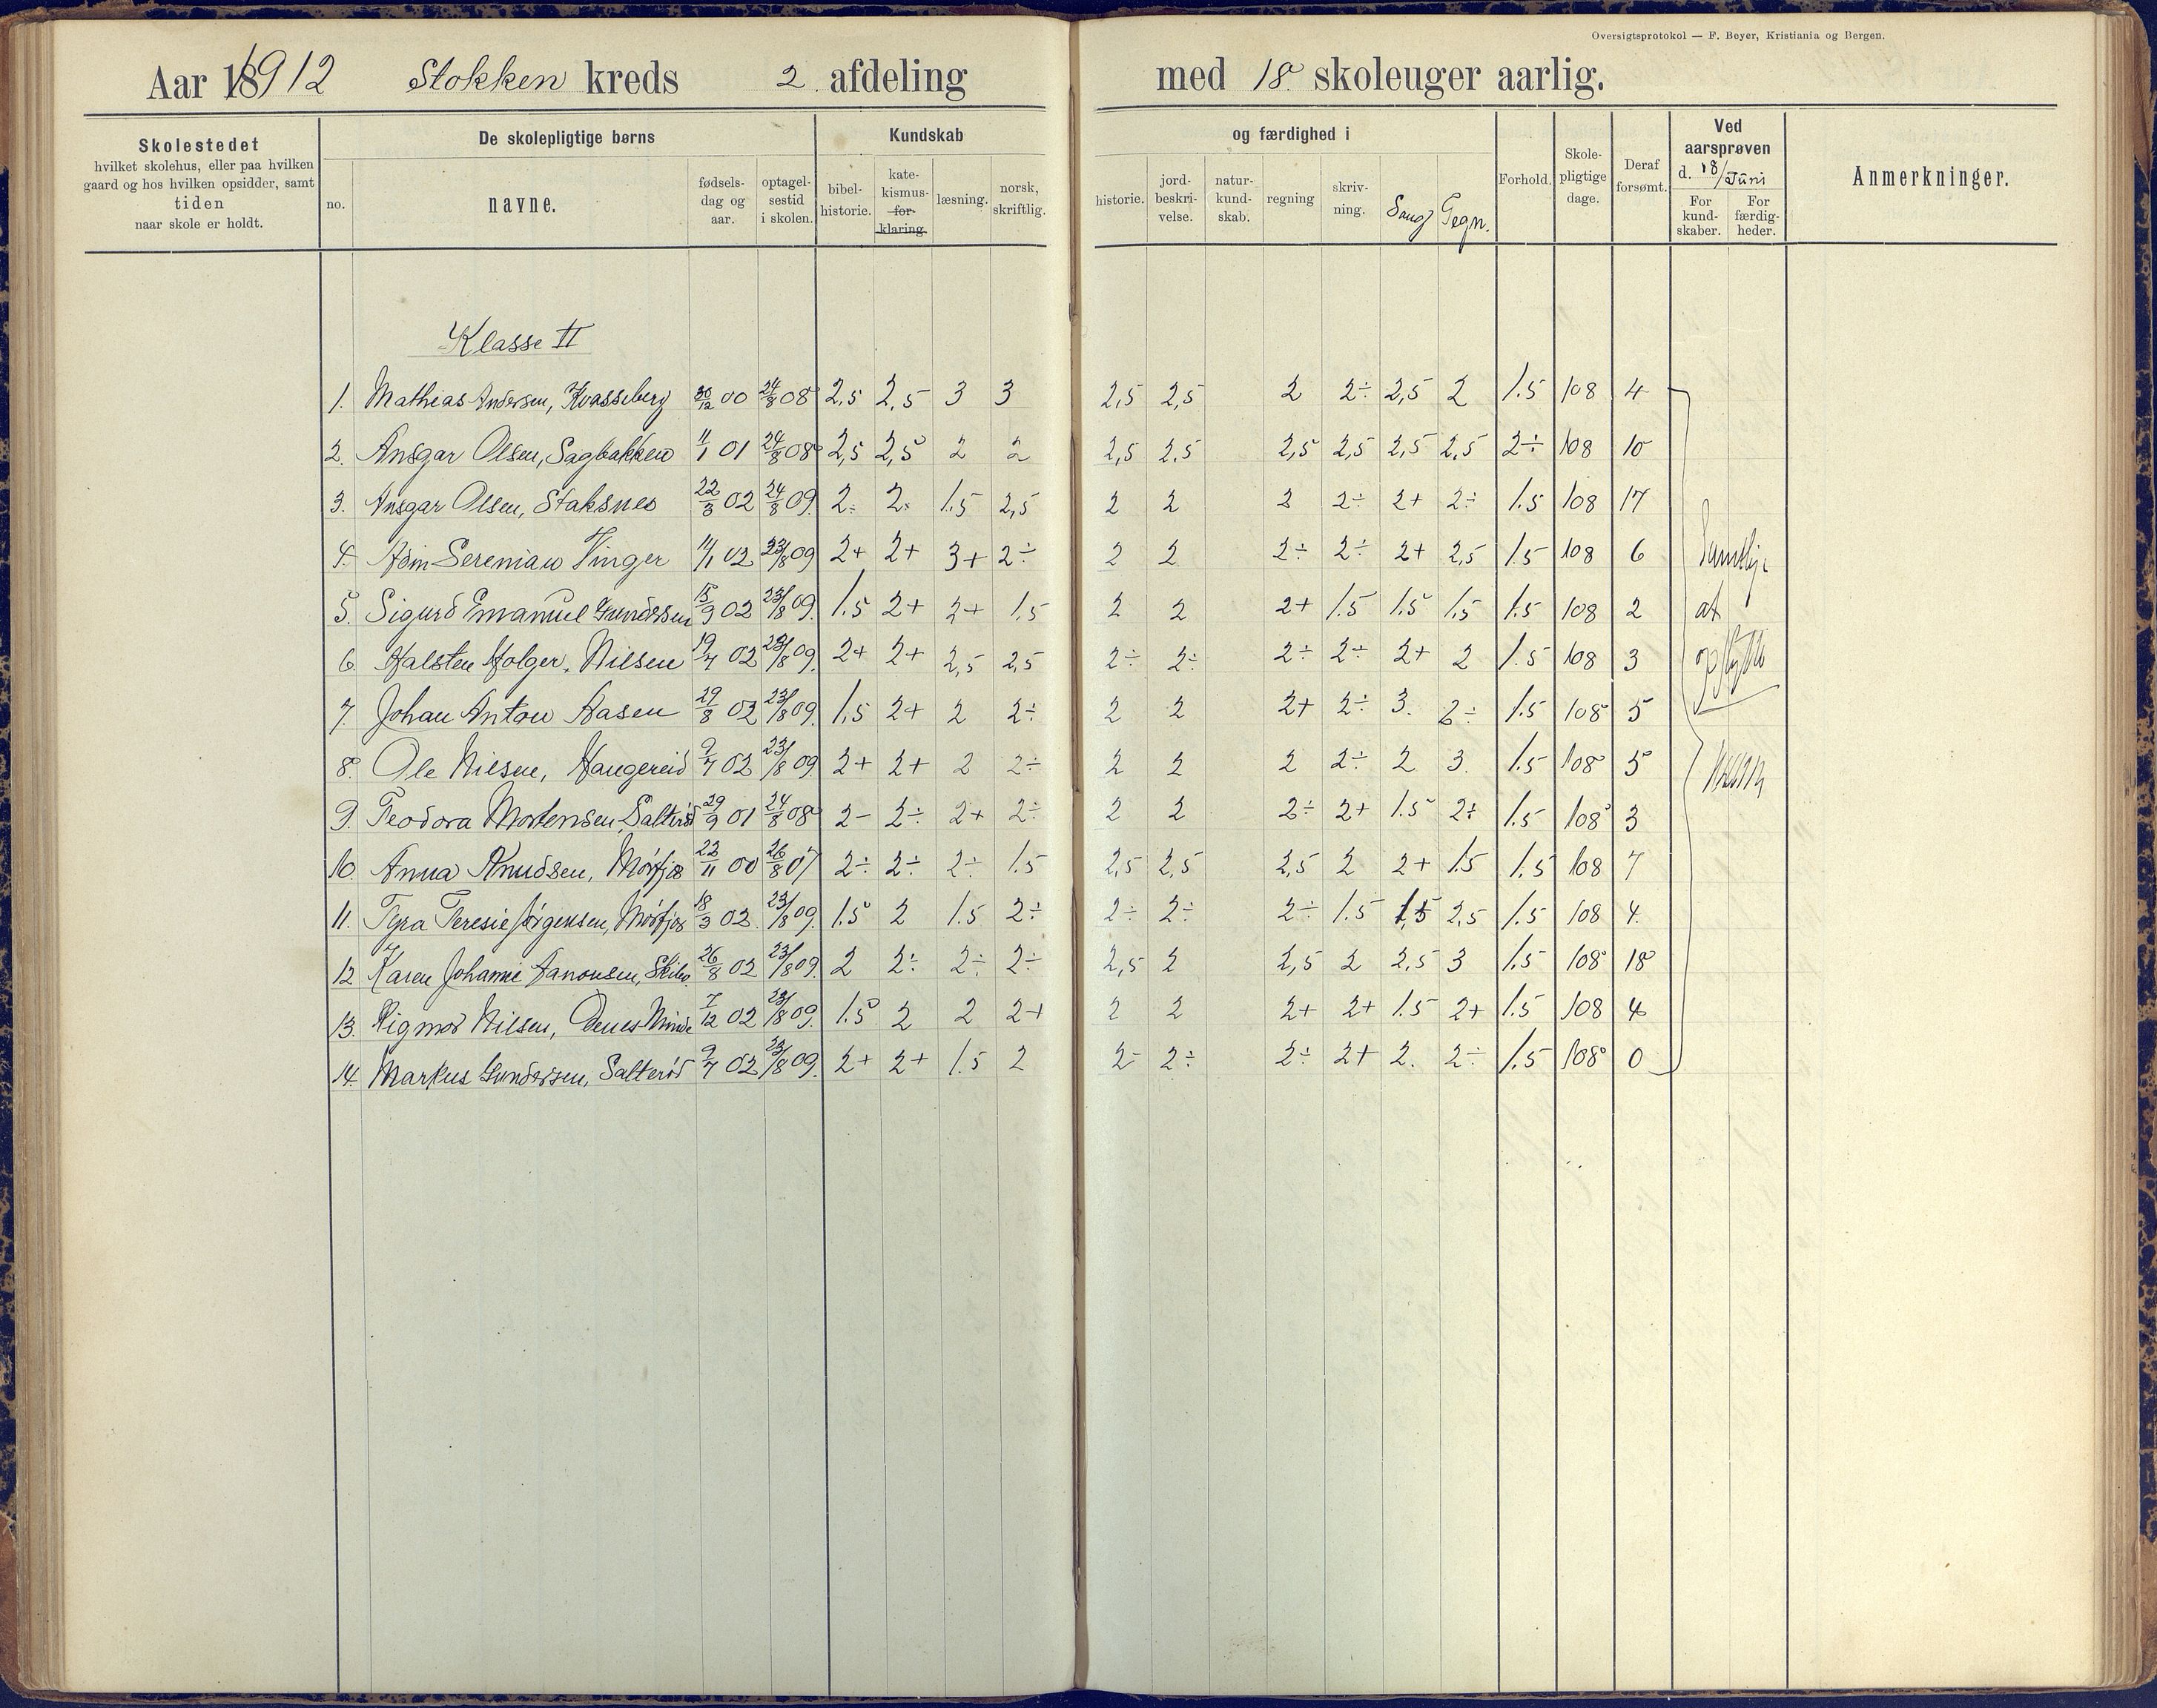 Oversigtsprotokol — F. Beyer, Kristiania og Bergen.
Aar 1912 Stokken kreds 2. afdeling med 18 skoleuger aarlig.
Skolestedet
hvilket skolehus, eller paa hvilken
gaard og hos hvilken opsidder, samt
tiden
naar skole er holdt.
De skolepligtige børns
no.
navne.
fødsels-
dag og
aar.
optagel-
sestid
i skolen.
Kundskab og færdighed i
bibel-
historie.
kate-
kismus-
for-
klaring
læsning.
norsk,
skriftlig.
historie.
jord-
beskri-
velse.
natur-
kund-
skab.
regning
skriv-
ning.
Sang
Tegn.
Forhold.
Skole-
pligtige
dage.
Deraf
forsømt.
Ved
aarsprøven
d. 18/Juni
For
kund-
skaber.
For
færdig-
heder.
Anmerkninger.
Klasse II
1. Mathias Andersen, Kvasseberg 30/12 00 24/8 08 2,5 2,5 3 3 2,5 2,5 2 2÷ 2,5 2 1.5 108 4
2. Ansgar Olsen, Sagbakken 11/1 01 24/8 08 2,5 2,5 2 2 2,5 2.5 2,5 2,5 2,5 2,5 2÷ 108 10
3. Ansgar Olsen, Staksnes 22/3 02 24/8 09. 2÷ 2÷ 1.5 2,5 2 2 2 2÷ 2+ 2÷ 1.5 108 17
4. Sereniau Vinger 02 23/8 09 2+ 2+ 3+ 2÷ 2 2 2÷ 2÷ 2+ 2,5 1.5 108 6
5. Sigurd Emanuel Gundersen 15/9 02 23/8 09. 1.5 2+ 2+ 1,5 2 2 2+ 1.5 1.5 1.5 1.5 108 2
6. Halsten Holger Nilsen 19/7 02 23/8 09. 2+ 2+ 2,5 2,5 2÷ 2÷ 2÷ 2÷ 2+ 2 1.5 108 3
7. Johan Anton Aasen 29/8 02 23/8 09. 1,5 2+ 2 2÷ 2 2 2+ 2÷ 3. 2÷ 1.5 108 5
8. Ole Nilsen, Haugereid 9/7 02 23/8 09 2+ 2+ 2 2÷ 2 2 2 2÷ 2 3. 1.5 108 5
9. Teodora Mortensen, Salterød 29/9 01 24/8 08 2- 2÷ 2+ 2÷ 2 2 2÷ 2+ 1.5 2÷ 1.5 108 3
10. Anna Knudsen, Mørfjær 22/11 00 26/8 07 2÷ 2÷ 2÷ 1.5 2,5 2,5 2,5 2 2+ 1.5 1.5 108 7
11. Teresie Jørgensen, Mørfjær 18/3 02. 23/8 09. 1.5 2 1.5 2÷ 2÷ 2÷ 2÷ 1.5 1,5 2,5 1.5 108 4.
12 Karen Johanne Aanonsen, 26/8 02 23/8 09. 2 2÷ 2÷ 2÷ 2,5 2 2,5 2 2,5 3 1.5 108 18
13. Rigmor Nilsen, Minde 7/12 02 23/8 09. 1.5 2 2 2+ 2 2 2+ 2+ 1.5 2+ 1.5 108 4
14. Markus Gundersen, Salterød 9/7 02 23/8 09. 2+ 2+ 1.5 2 2÷ 2÷ 2÷ 2+ 2. 2÷ 1.5 108 0
Samtlige
at
opflytte